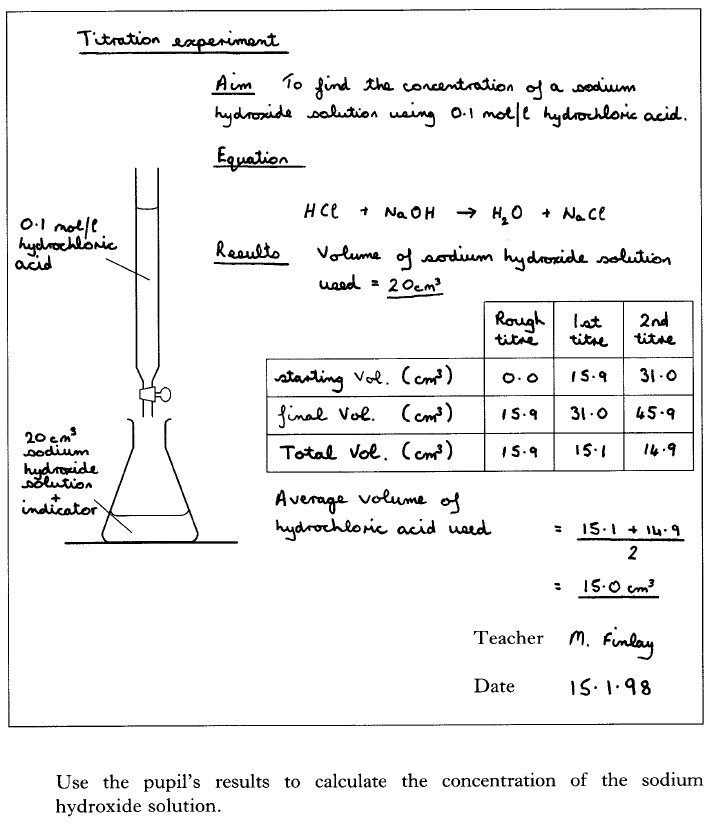 Titration experiment
Aim To find the concentration of a sodium
hydroxide solution using 0.1 mol/l hydrochloric acid.
Equation
HCl + NaOH → H₂O + NaCl
0.1 mol/l
hydrochloric
acid
Results Volume of sodium hydroxide solution
used = 20cm³
Rough titre 1st titre 2nd titre
starting Vol. (cm³) 0.0 15.9 31.0
final Vol. (cm³) 15.9 31.0 45.9
Total Vol. (cm³) 15.9 15.1 14.9
20 cm³
sodium
hydroxide
solution
+
indicator
Average volume of
hydrochloric acid used = 15.1 + 14.9
2
= 15.0 cm³
Teacher M. Finlay
Date 15.1.98
Use the pupil's results to calculate the concentration of the sodium
hydroxide solution.